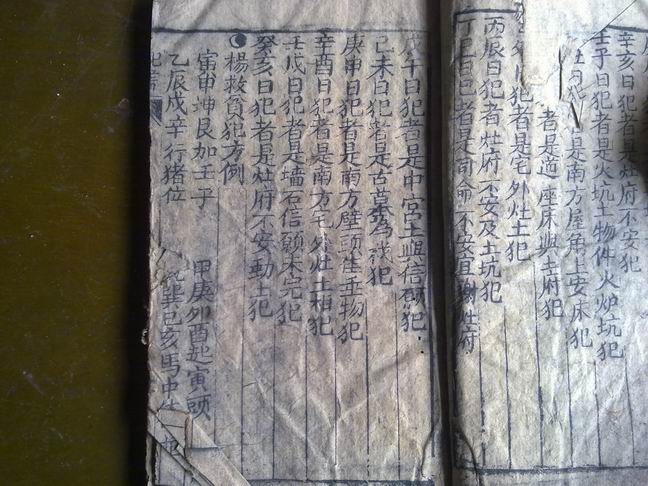 辛亥日犯者是灶府不安犯
壬子日犯者是火坑土物件火炉坑犯
是南方屋角上安床犯
者是道 座床與土府犯
犯者是宅外灶土犯
丙辰日犯者灶府不安及土坑犯
丁巳日犯者是司命不安宜謝灶府
戊午日犯者是中宮土與信願犯
己未日犯者是古墓為殃犯
庚申日犯者是南方壁頭住垂物犯
辛酉日犯者是南方宅外灶土相犯
壬戌日犯者是墙石信願未完犯
癸亥日犯者是灶府不安動土犯
楊救貧犯方例
寅申坤艮加壬子 甲庚卯酉起寅頭
乙辰戌辛行猪位 巽巳亥馬中